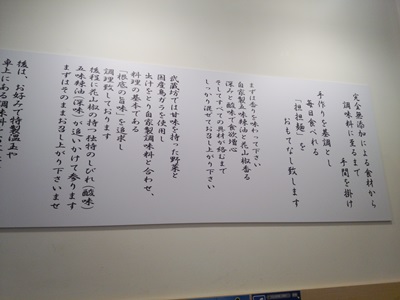 完全無添加による食材から
調味料に至るまで
手間を掛け
手作りを基調とし
毎日食べれる
「担担麺」を
おもてなし致します
まずは香りを味わって下さい
自家製五味辣油と花山椒香る
深みと酸味で食欲増心
そしてすべての具材が絡むまで
しっかり混ぜてお召し上がり下さい
武蔵坊では甘味を持った野菜と
国産鳥ガラを使用し
出汁をとり自家製調味料と合わせ、
料理の基本である
「根底の旨味」を追求し
調理致しております
後程に花山椒の持つ独特のしびれ(酸味)
五味辣油(深味)が追いかけて参ります
まずはそのままお召し上がり下さいませ
後は、お好みで特製温玉や
卓上にある調味料